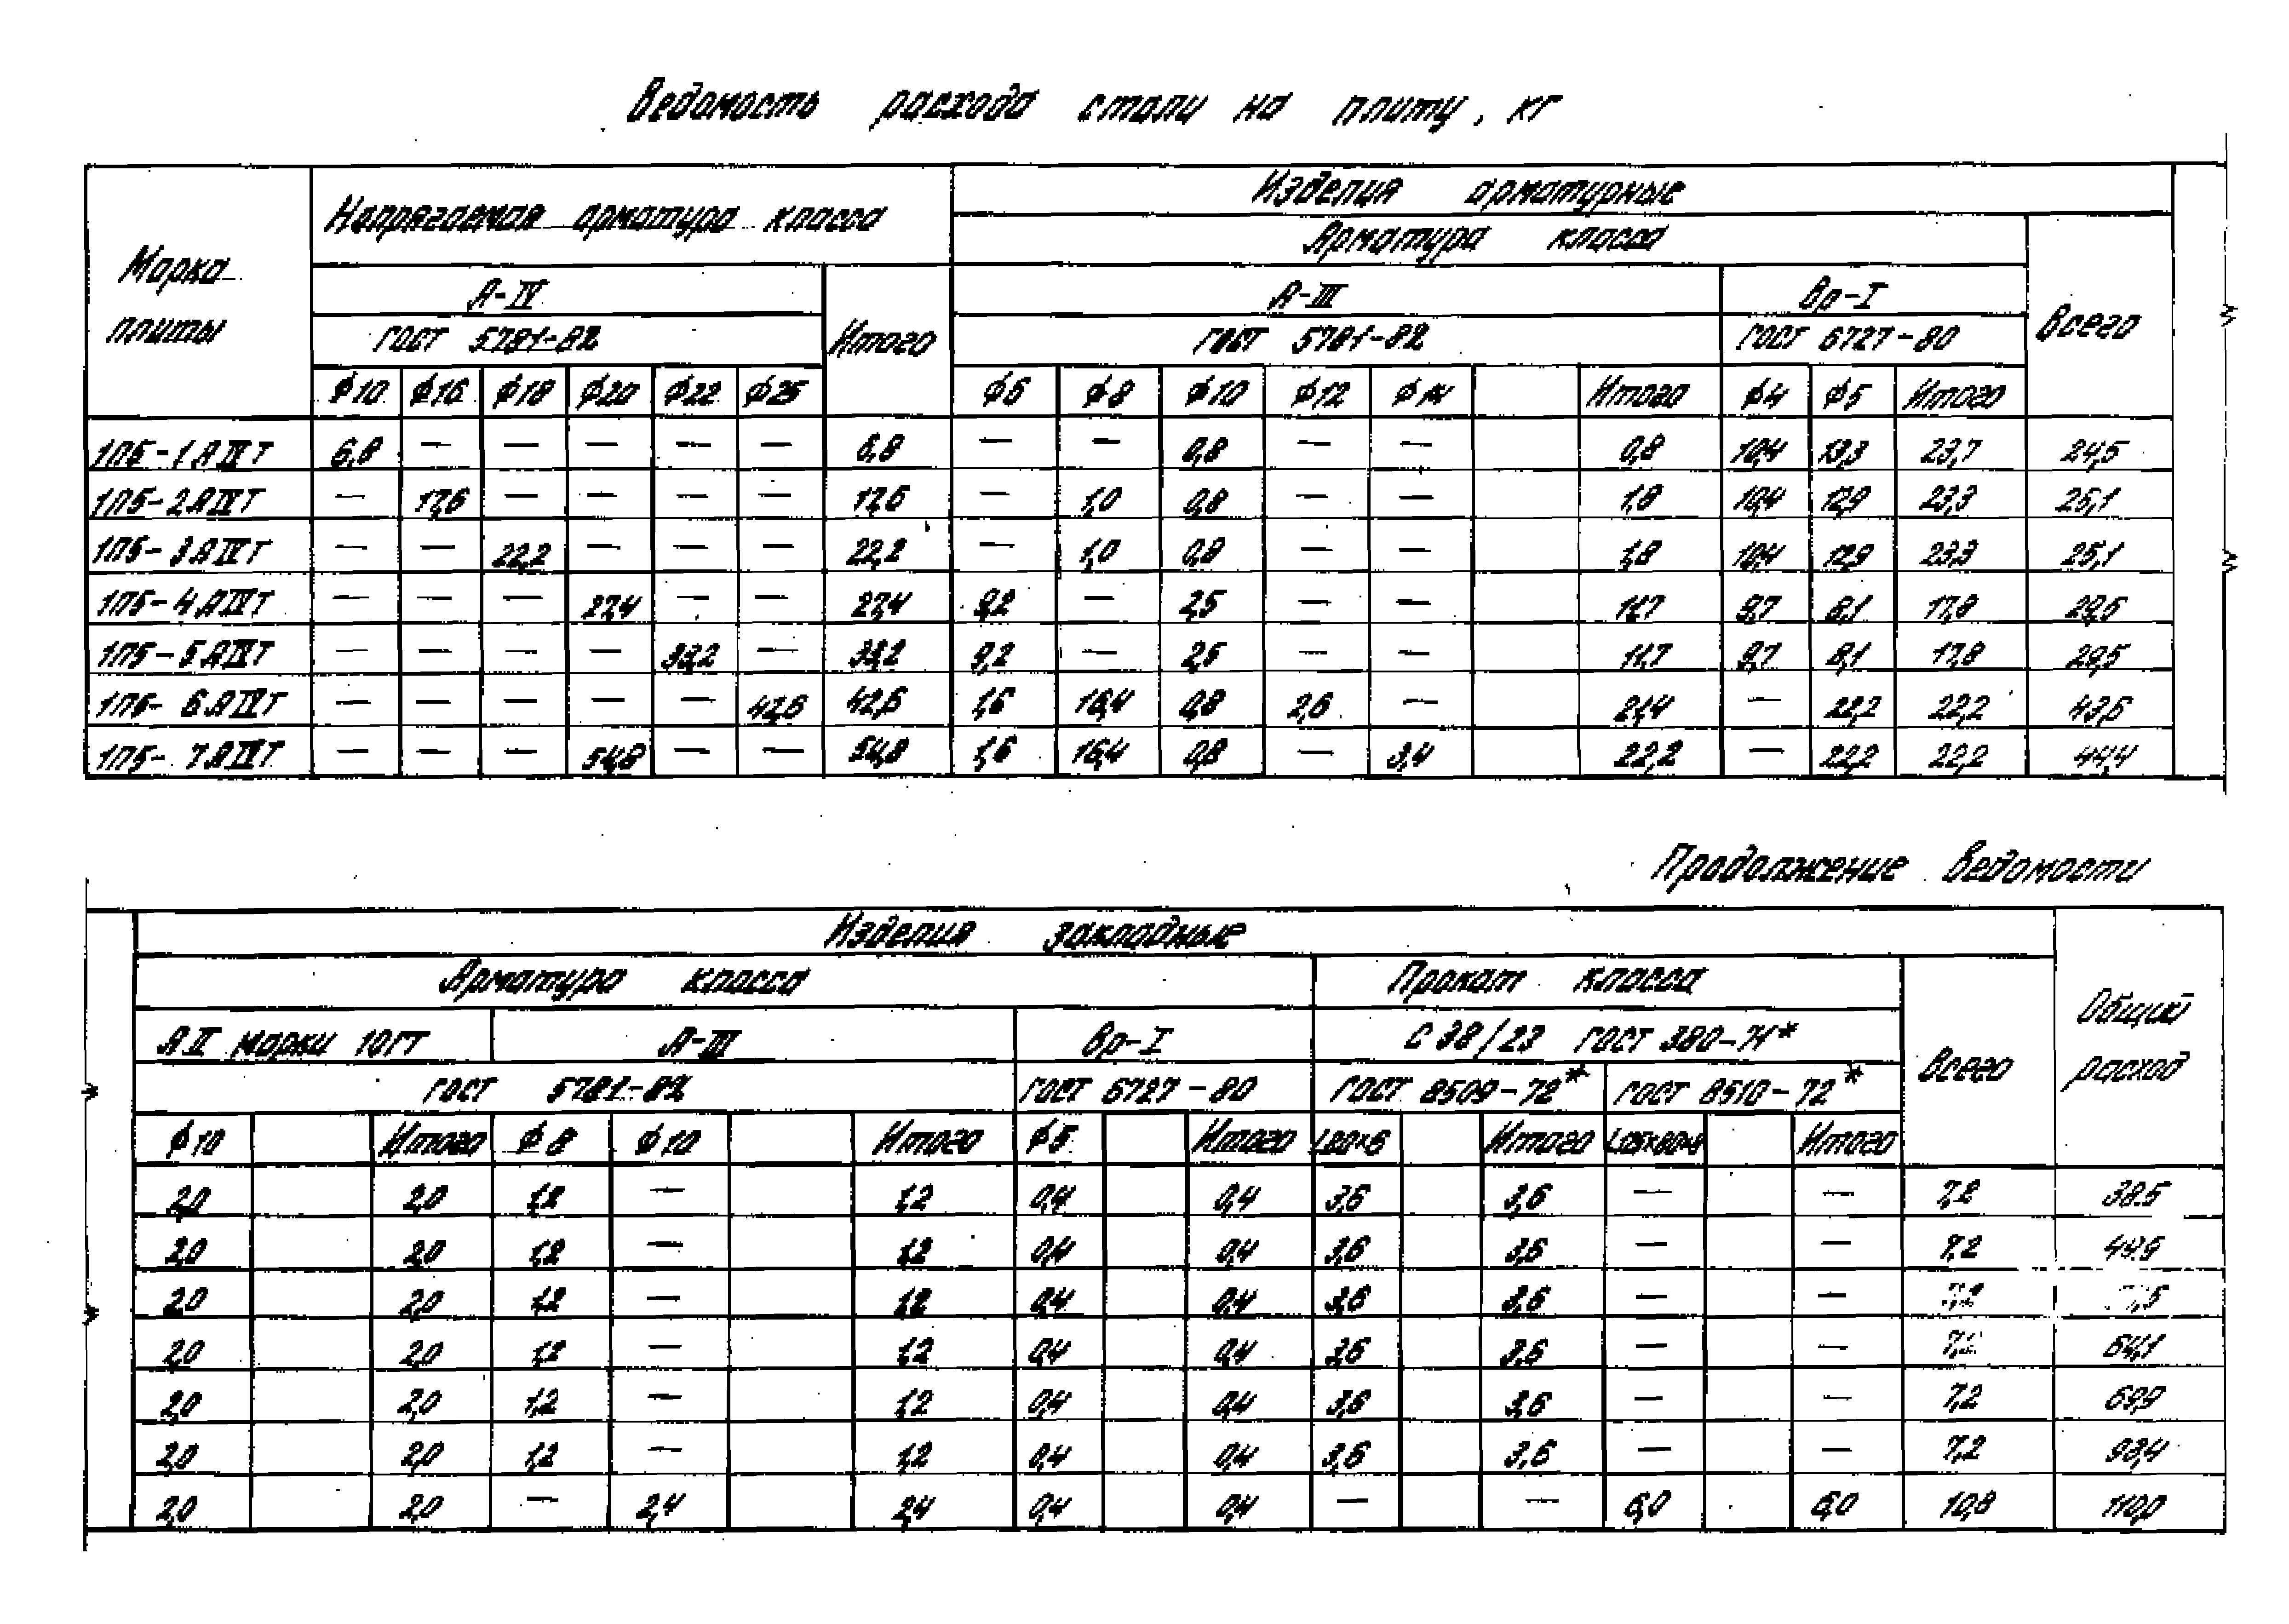 Ведомость расхода стали на плиту, кг
Марка плиты
Напрягаемая арматура класса
Изделия арматурные
Арматура класса
А-IV
Итого
А-III
Вр-I
Всего
ГОСТ 5781-82
ГОСТ 5781-82
ГОСТ 6727-80
ϕ10 ϕ16 ϕ18 ϕ20 ϕ22 ϕ25 ϕ6 ϕ8 ϕ10 ϕ12 ϕ14 Итого ϕ4 ϕ5 Итого
1П5-1АIVТ 6,8 — — — — — 6,8 — — 0,8 — — 0,8 10,4 13,3 23,7 24,5
1П5-2АIVТ — 17,6 — — — — 17,6 — 1,0 0,8 — — 1,8 10,4 12,9 23,3 25,1
1П5-3АIVТ — — 22,2 — — — 22,2 — 1,0 0,8 — — 1,8 10,4 12,9 23,3 25,1
1П5-4АIVТ — — — 27,4 — — 27,4 9,2 — 2,5 — — 11,7 9,7 8,1 17,8 29,5
1П5-5АIVТ — — — — 33,2 — 33,2 9,2 — 2,5 — — 11,7 9,7 8,1 17,8 29,5
1П5-6АIVТ — — — — — 42,6 42,6 1,6 16,4 0,8 2,6 — 21,4 — 22,2 22,2 43,6
1П5-7АIVТ — — — 54,8 — — 54,8 1,6 16,4 0,8 — 3,4 22,2 — 22,2 22,2 44,4
Продолжение ведомости
Изделия закладные
Общий расход
Арматура класса
Прокат класса
Всего
АII марки 10ГТ
А-III
Вр-I
С 38/23 ГОСТ 380-71*
ГОСТ 5781-82
ГОСТ 6727-80
ГОСТ 8509-72*
ГОСТ 8510-72*
ϕ10 Итого ϕ8 ϕ10 Итого ϕ5 Итого L80×6 Итого Итого
2,0 2,0 1,2 — 1,2 0,4 0,4 3,6 3,6 — — 7,2 38.5
2,0 2,0 1,2 — 1,2 0,4 0,4 3,6 3,6 — — 7,2 49,9
2,0 2,0 1,2 — 1,2 0,4 0,4 3,6 3,6 — —
2,0 2,0 1,2 — 1,2 0,4 0,4 3,6 3,6 — — 7,2 64,1
2,0 2,0 1,2 — 1,2 0,4 0,4 3,6 3,6 — — 7,2 69,9
2,0 2,0 1,2 — 1,2 0,4 0,4 3,6 3,6 — — 7,2 93,4
2,0 2,0 — 2,4 2,4 0,4 0,4 — — 6,0 6,0 10,8 110,0